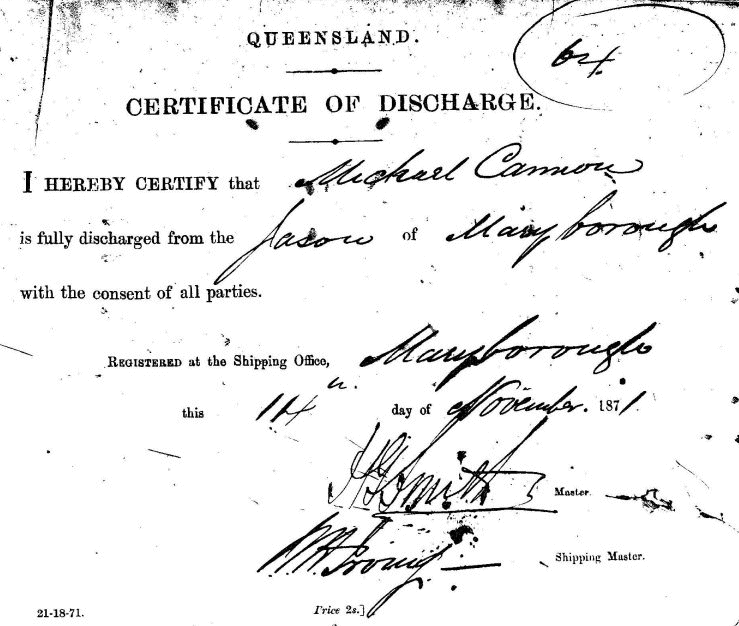 QUEENSLAND.
64.
CERTIFICATE OF DISCHARGE.
I HEREBY CERTIFY that Michael Cannon
is fully discharged from the Jason of Maryborough
with the consent of all parties.
REGISTERED at the Shipping Office, Maryborough
this 14th day of November. 1871.
Smith Master.
Shipping Master.
21-18-71.
Price 2s.]